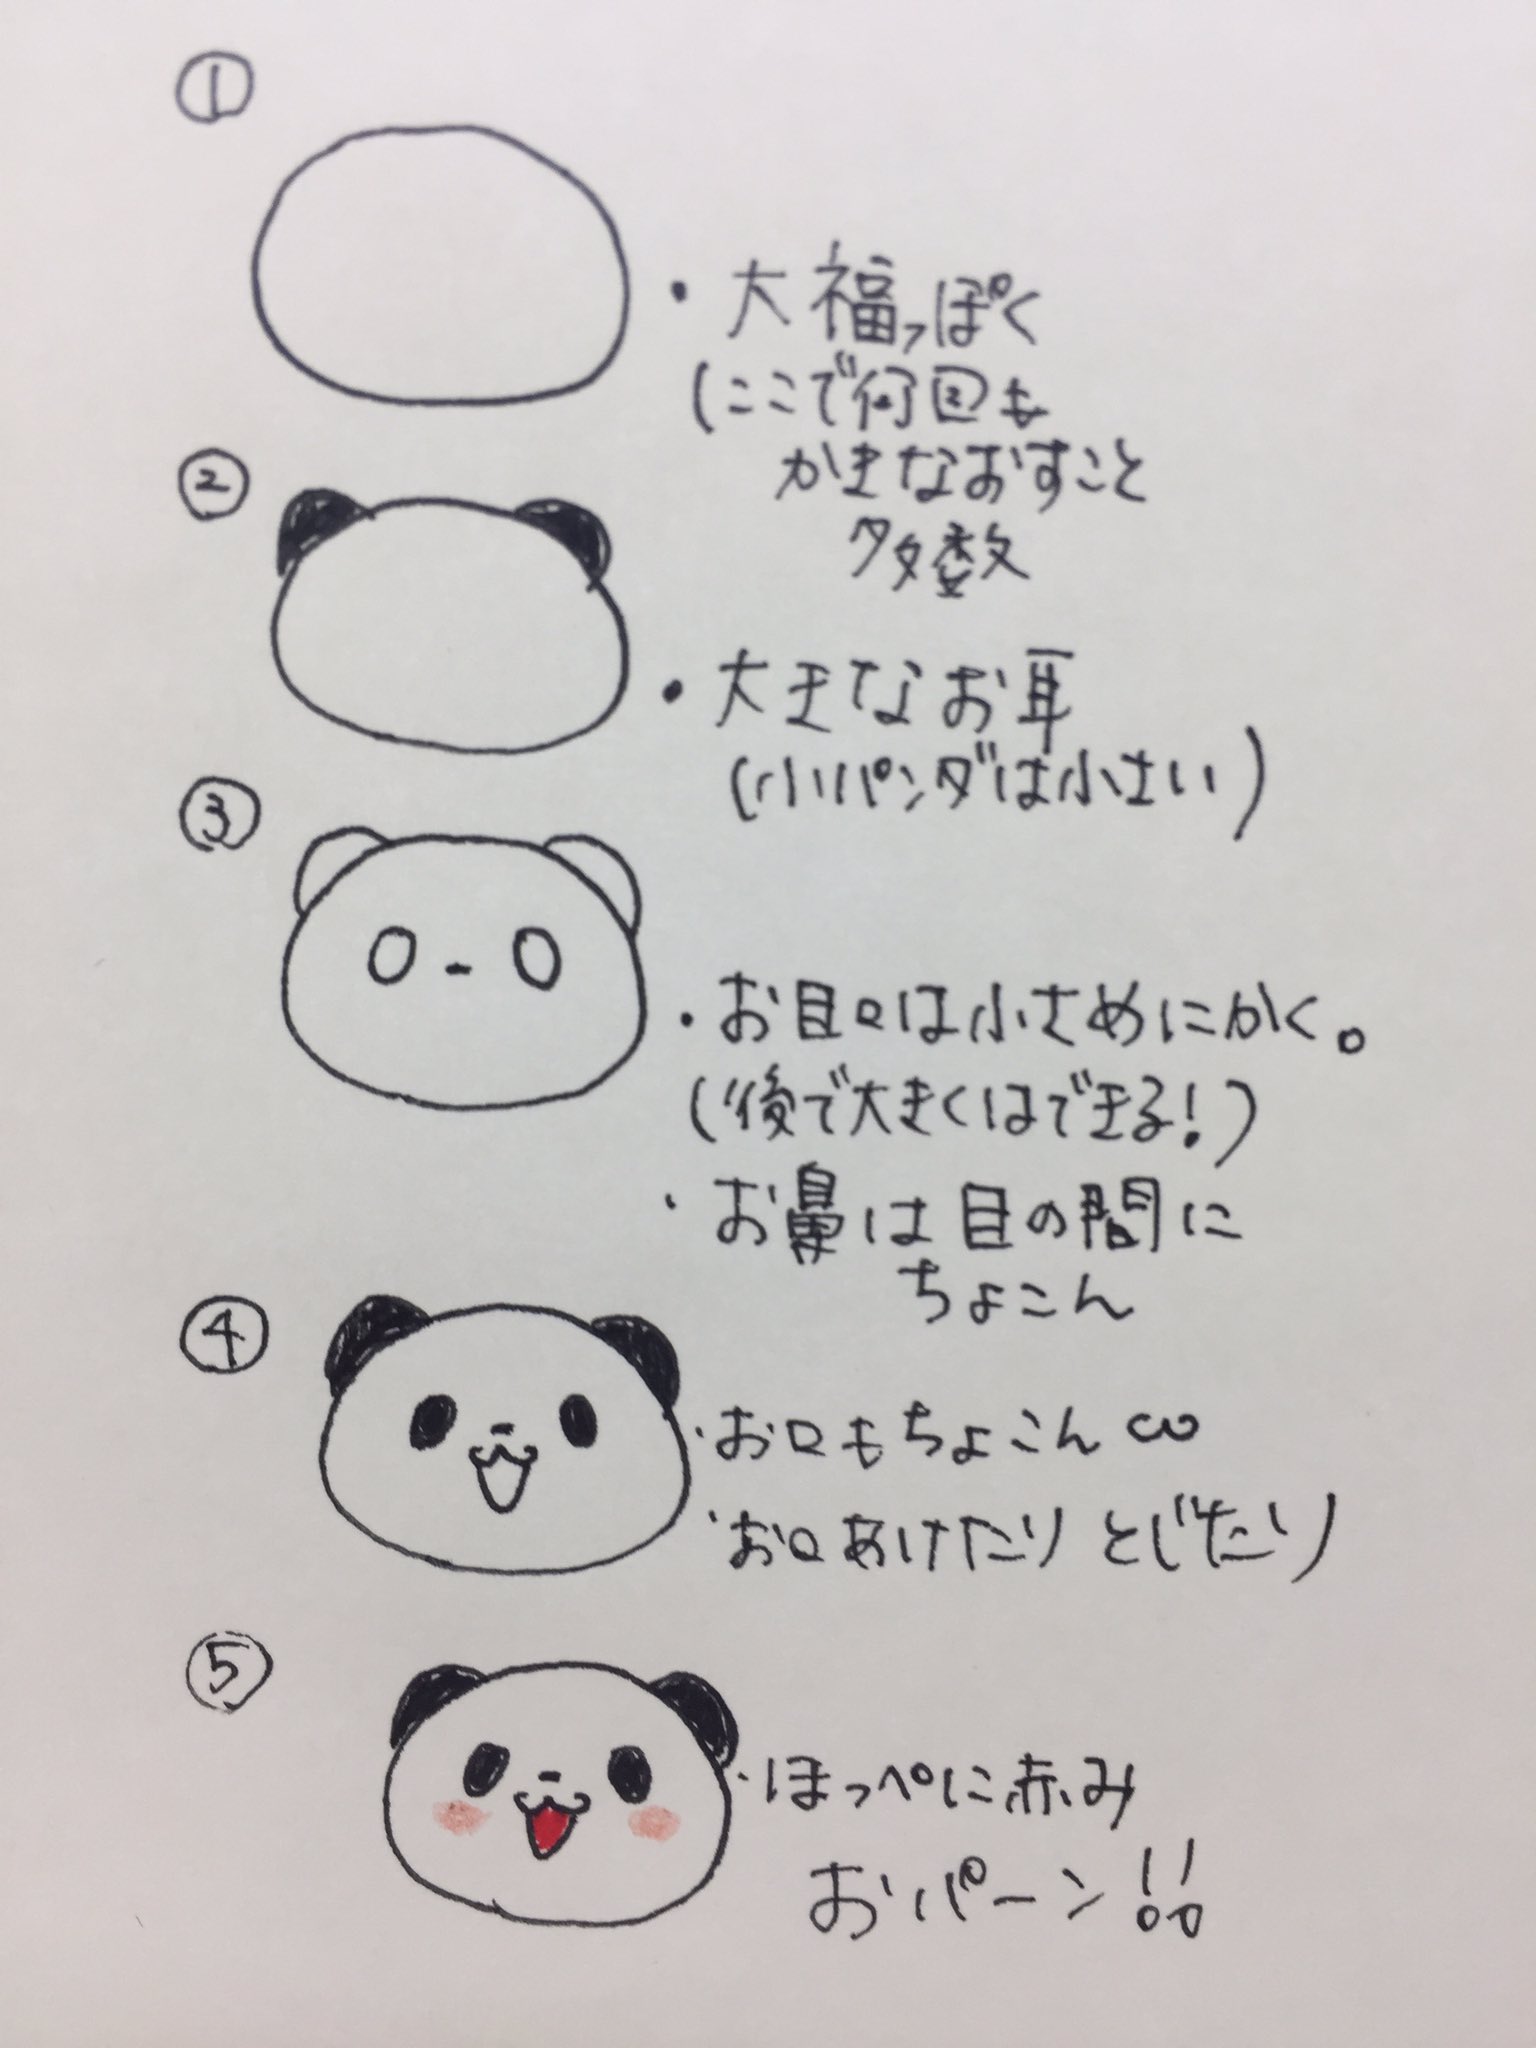 ①
・大福っぽく
(ここで何回も
かきなおすこと
多数
②
・大きなお耳
(小パンダは小さい)
③
・お目々は小さめにかく。
(後で大きくはできる!)
・お鼻は目の間に
ちょこん
④
・お口もちょこんω
・お口あけたりとじたり
⑤
・ほっぺに赤み
おパーン!!